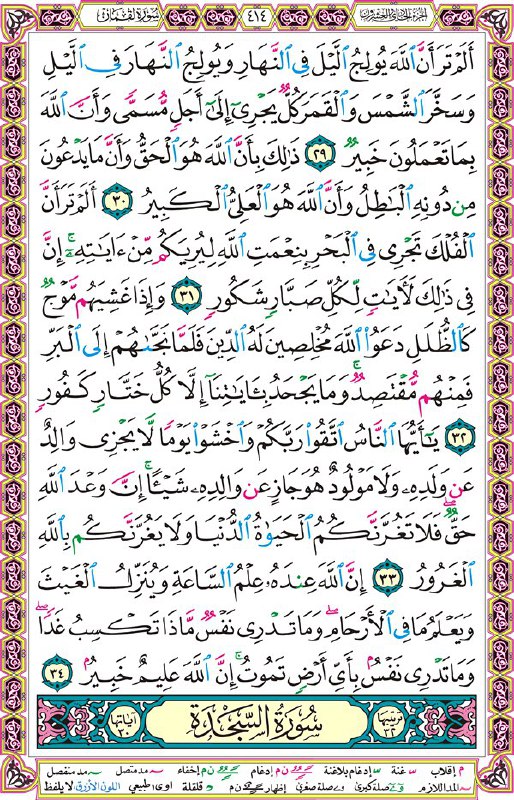 الجزء الحادي والعشرون ٤١٤ سورة لقمان
أَلَمْ تَرَ أَنَّ ٱللَّهَ يُولِجُ ٱلَّيْلَ فِى ٱلنَّهَارِ وَيُولِجُ ٱلنَّهَارَ فِى ٱلَّيْلِ
وَسَخَّرَ ٱلشَّمْسَ وَٱلْقَمَرَ كُلٌّ يَجْرِىٓ إِلَىٰٓ أَجَلٍ مُّسَمًّى وَأَنَّ ٱللَّهَ
بِمَا تَعْمَلُونَ خَبِيرٌ ٢٩ ذَٰلِكَ بِأَنَّ ٱللَّهَ هُوَ ٱلْحَقُّ وَأَنَّ مَا يَدْعُونَ
مِن دُونِهِ ٱلْبَٰطِلُ وَأَنَّ ٱللَّهَ هُوَ ٱلْعَلِىُّ ٱلْكَبِيرُ ٣٠ أَلَمْ تَرَ أَنَّ
ٱلْفُلْكَ تَجْرِى فِى ٱلْبَحْرِ بِنِعْمَتِ ٱللَّهِ لِيُرِيَكُم مِّنْ ءَايَٰتِهِۦٓ ۚ إِنَّ
فِى ذَٰلِكَ لَءَايَٰتٍ لِّكُلِّ صَبَّارٍ شَكُورٍ ٣١ وَإِذَا غَشِيَهُم مَّوْجٌ
كَٱلظُّلَلِ دَعَوُا۟ ٱللَّهَ مُخْلِصِينَ لَهُ ٱلدِّينَ فَلَمَّا نَجَّىٰهُمْ إِلَى ٱلْبَرِّ
فَمِنْهُم مُّقْتَصِدٌ ۚ وَمَا يَجْحَدُ بِـَٔايَٰتِنَآ إِلَّا كُلُّ خَتَّارٍ كَفُورٍ
٣٢ يَٰٓأَيُّهَا ٱلنَّاسُ ٱتَّقُوا۟ رَبَّكُمْ وَٱخْشَوْا۟ يَوْمًا لَّا يَجْزِى وَالِدٌ
عَن وَلَدِهِۦ وَلَا مَوْلُودٌ هُوَ جَازٍ عَن وَالِدِهِۦ شَيْـًٔا ۚ إِنَّ وَعْدَ ٱللَّهِ
حَقٌّ ۖ فَلَا تَغُرَّنَّكُمُ ٱلْحَيَوٰةُ ٱلدُّنْيَا وَلَا يَغُرَّنَّكُم بِٱللَّهِ
ٱلْغَرُورُ ٣٣ إِنَّ ٱللَّهَ عِندَهُۥ عِلْمُ ٱلسَّاعَةِ وَيُنَزِّلُ ٱلْغَيْثَ
وَيَعْلَمُ مَا فِى ٱلْأَرْحَامِ ۖ وَمَا تَدْرِى نَفْسٌ مَّاذَا تَكْسِبُ غَدًا ۖ
وَمَا تَدْرِى نَفْسٌۢ بِأَىِّ أَرْضٍ تَمُوتُ ۚ إِنَّ ٱللَّهَ عَلِيمٌ خَبِيرٌۢ ٣٤
ترتيبها ٣٢ سُورَةُ السَّجْدَةِ آياتها ٣٠
م إقلاب غنة إدغام بلاغنة ن م إدغام ن م إخفاء مد متصل مد منفصل
المد اللازم صلة كبرى صلة صغرى إظهار ن م قلقلة اوى: طبيعي اللون الأزرق لا يلفظ